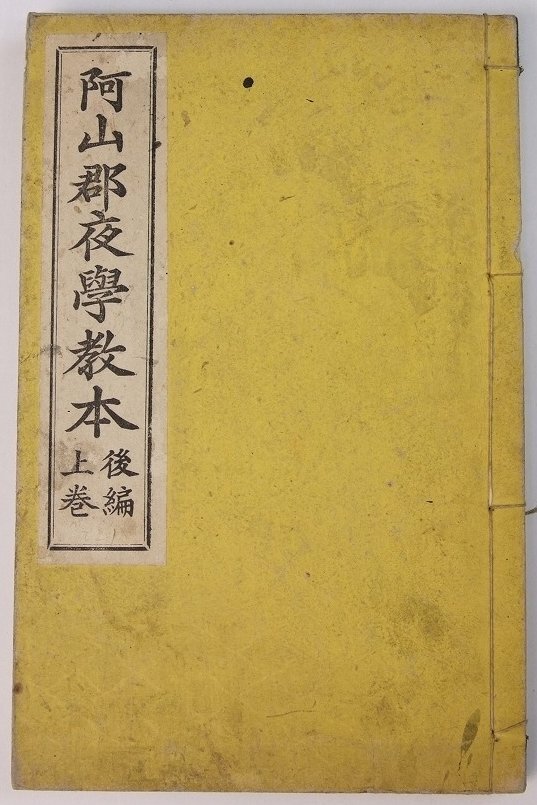 阿山郡夜學教本
後編
上巻